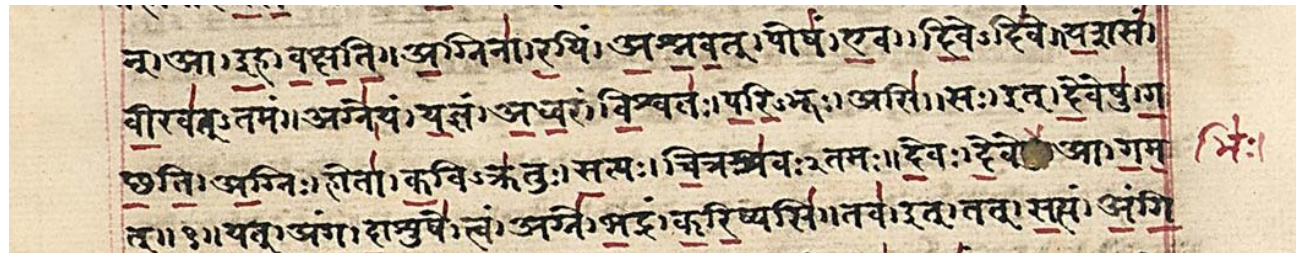 न्।आ।इह।वक्षति॥अग्निना।रयिं।अश्नवत्।पोषं।एव।दिवेऽदिवे॥यशसं।
वीरवत्ऽतमं॥अग्ने।यं।यज्ञं।अध्वरं।विश्वतः।परिऽभूः।असि॥सः।इत्।देवेषु।ग
छति।अग्निः।होता।कविऽक्रतुः।सत्यः।चित्रश्रवःऽतमः॥देवः।देवे आ।गम
भिः।
त्॥१॥यत्।अंग।दाशुषे।त्वं।अग्ने।भद्रं।करिष्यसि॥तव।इत्।तत्।सत्यं।अंगि